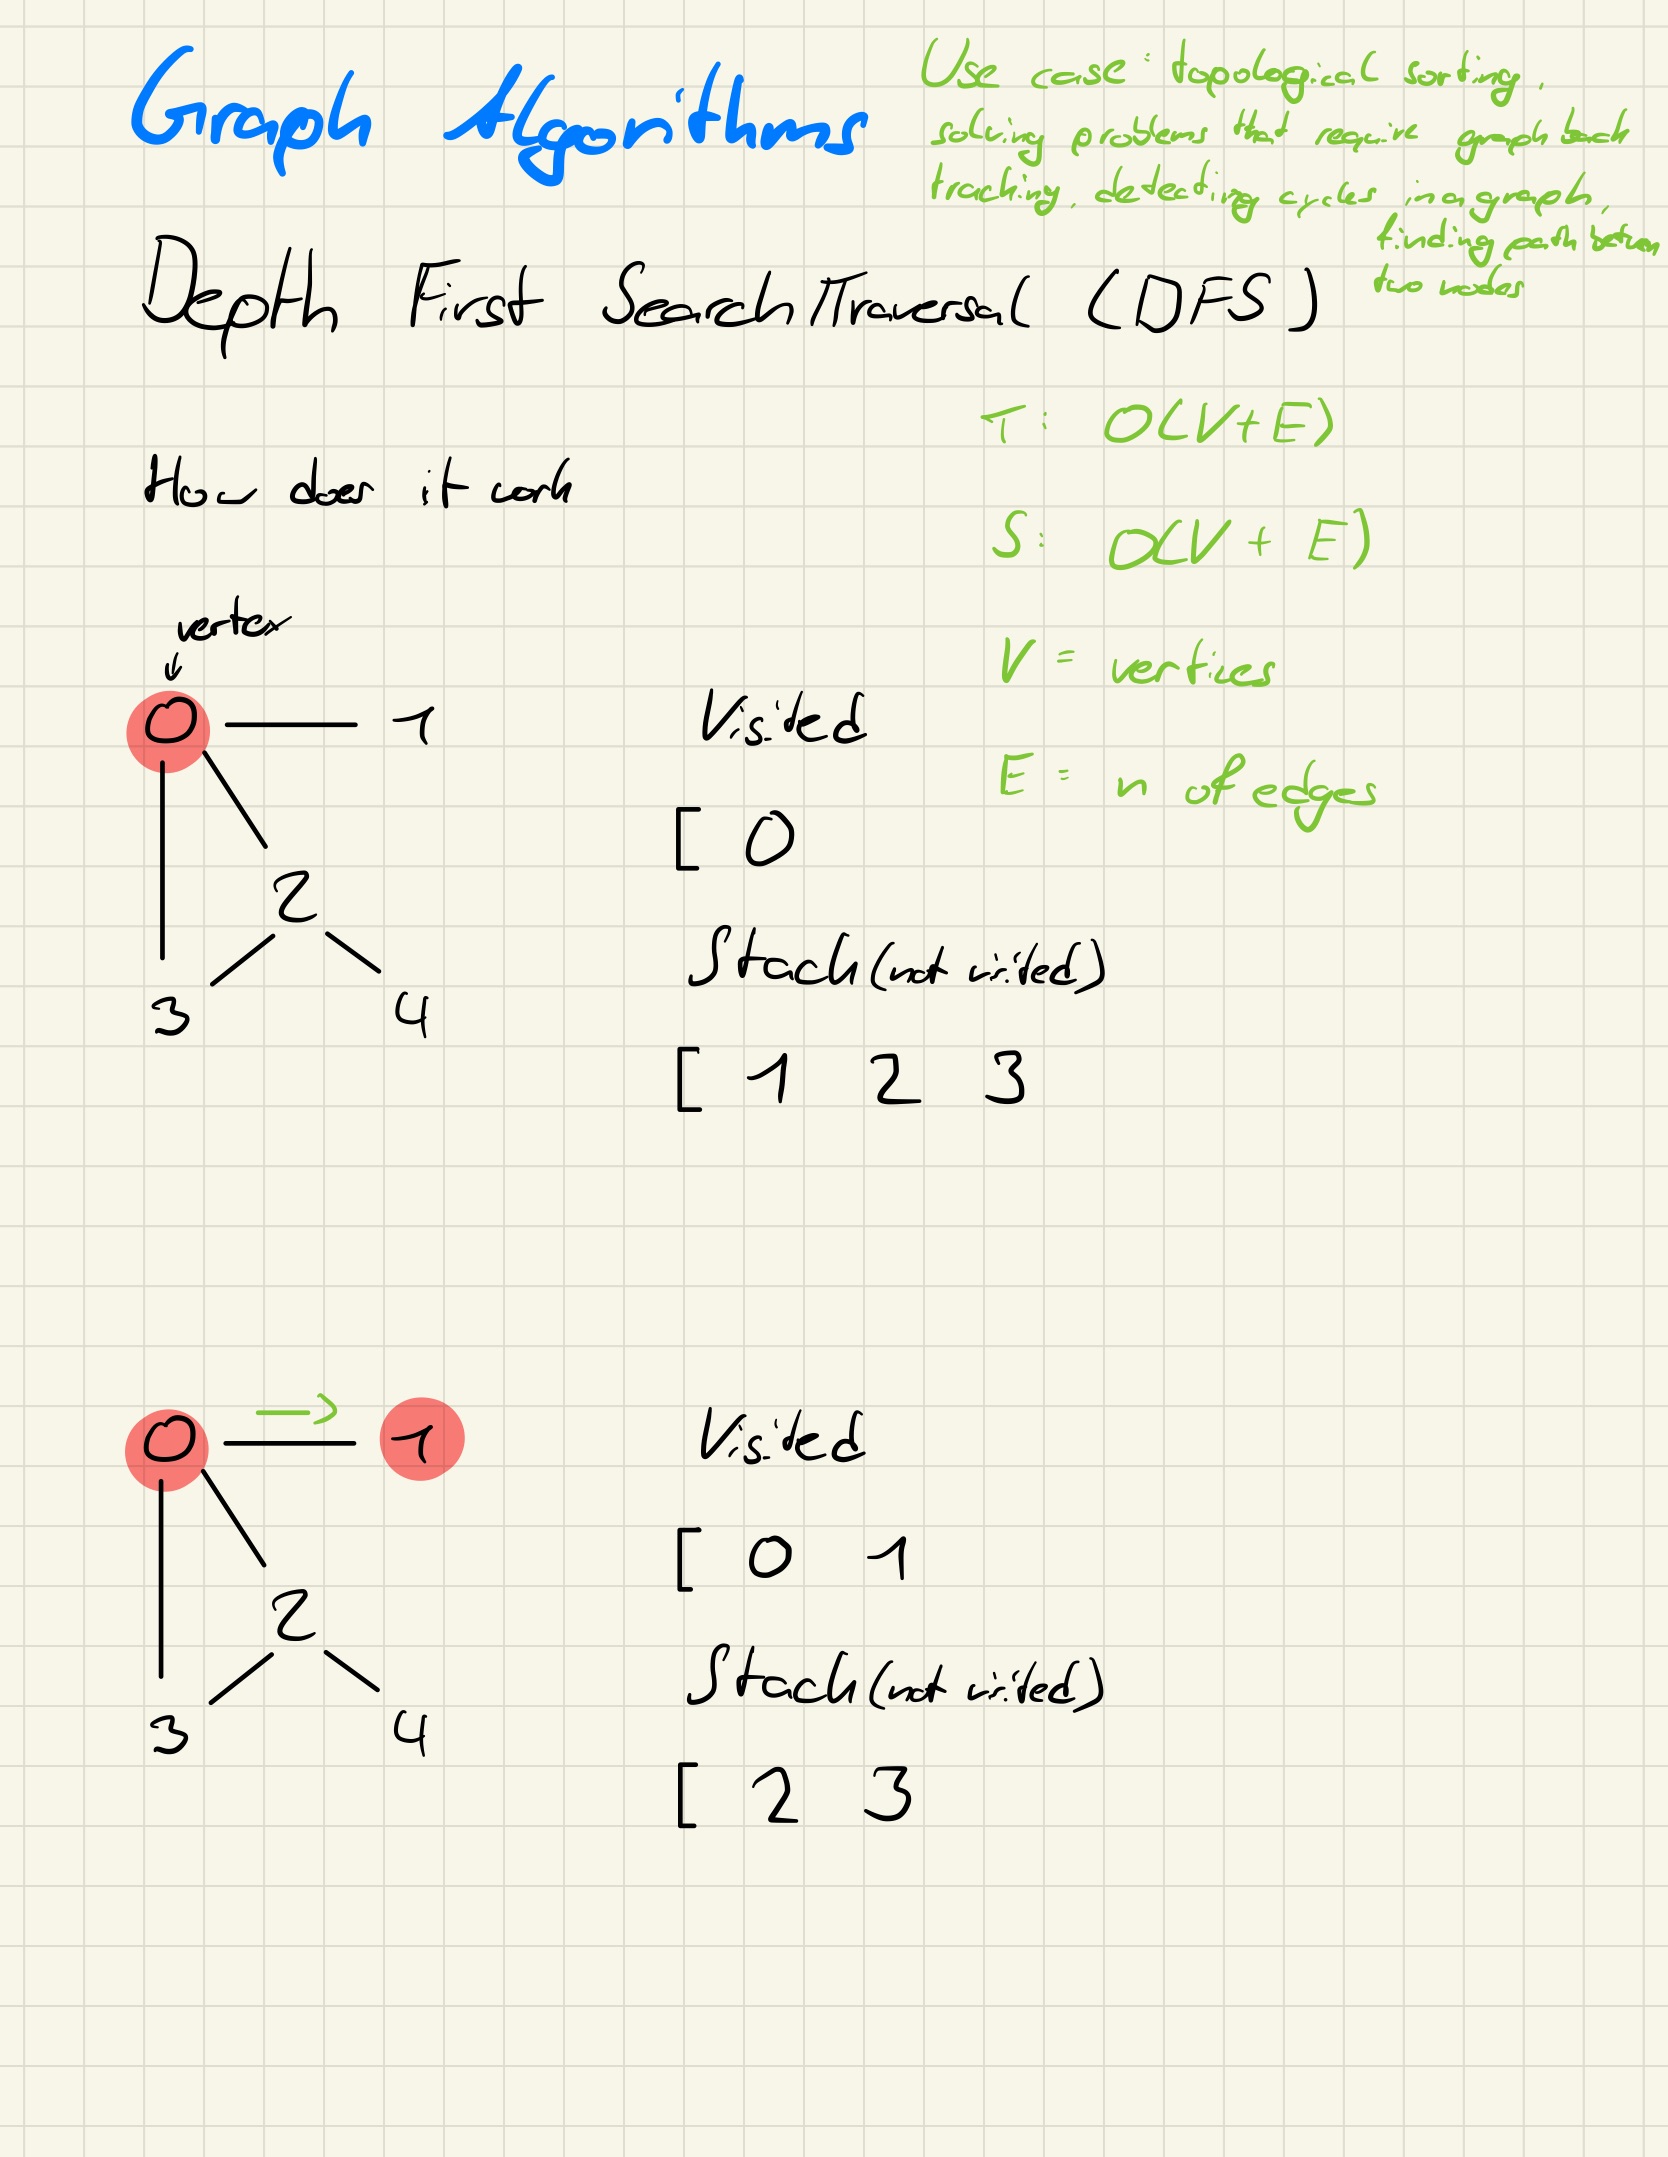 Graph Algorithms
Use case: topological sorting,
solving problems that require graph back
tracking, detecting cycles in a graph,
finding path between
two nodes
Depth First Search/Traversal (DFS)
T: O(V+E)
How does it work
S: O(V + E)
vertex
V = vertices
0 1
Visited
E = n of edges
[ 0
2
Stack (not visited)
3 4
[ 1 2 3
0 1
Visited
[ 0 1
2
Stack (not visited)
3 4
[ 2 3